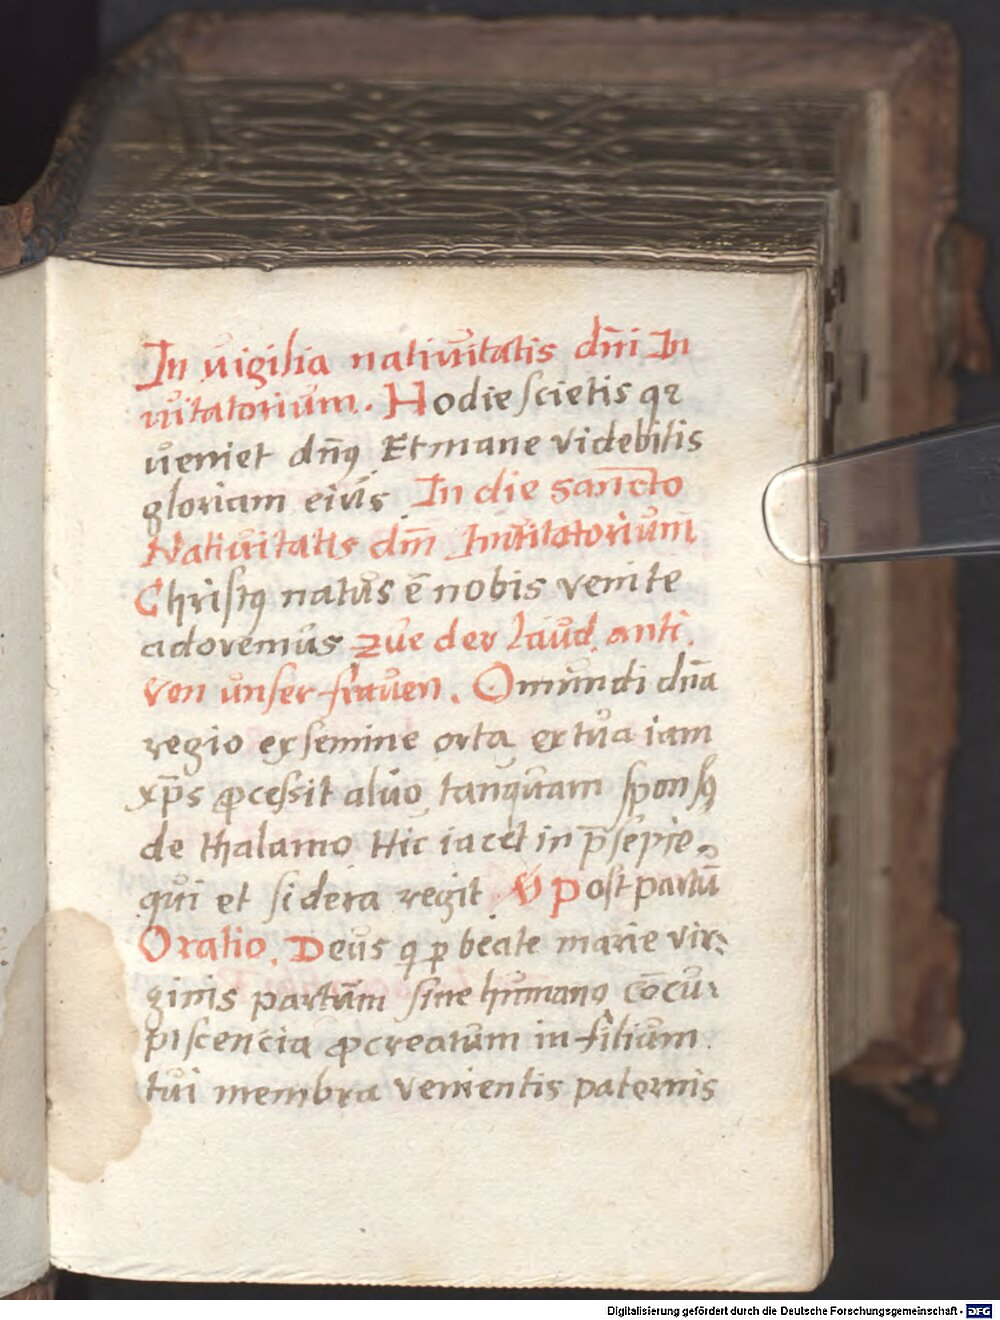 In vigilia nativitatis dn̄i In
vitatorium. Hodie scietis qꝛ
veniet dn̄ꝯ Et mane videbitis
gloriam eius In die sancto
Nativitatis dn̄i Invitatorium
Christꝯ natus ē nobis venite
adoremus zue der laud. anti.
von unser frauen. O mundi dn̄a
regio ex semine orta ex tua iam
xp̄s ꝓcessit aluo tanquam sponsꝯ
de thalamo Hic iacet in p̄sepie
qui et sidera regit ℣ Post partū
Oratio. Deus q ꝑ beate marie vir:
ginis partum sine humano cōcu:
piscencia ꝓcreatum in filium
tui membra venientis paternis
Digitalisierung gefördert durch die Deutsche Forschungsgemeinschaft - DFG